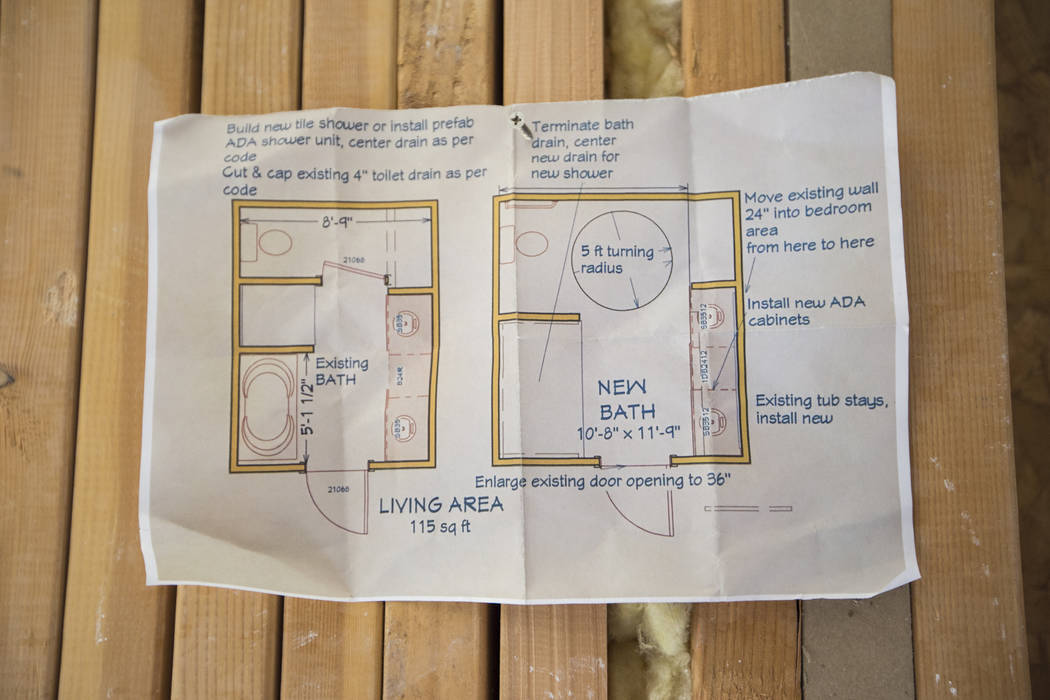 Build new tile shower or install prefab
ADA shower unit, center drain as per
code
Cut & cap existing 4" toilet drain as per
code
8'-9"
21068
SB35
B24R
SB35
Existing
BATH
5'-1 1/2"
21068
LIVING AREA
115 sq ft
Terminate bath
drain, center
new drain for
new shower
5 ft turning
radius
NEW
BATH
10'-8" x 11'-9"
SB3512
SB3512
Enlarge existing door opening to 36"
Move existing wall
24" into bedroom
area
from here to here
Install new ADA
cabinets
Existing tub stays,
install new